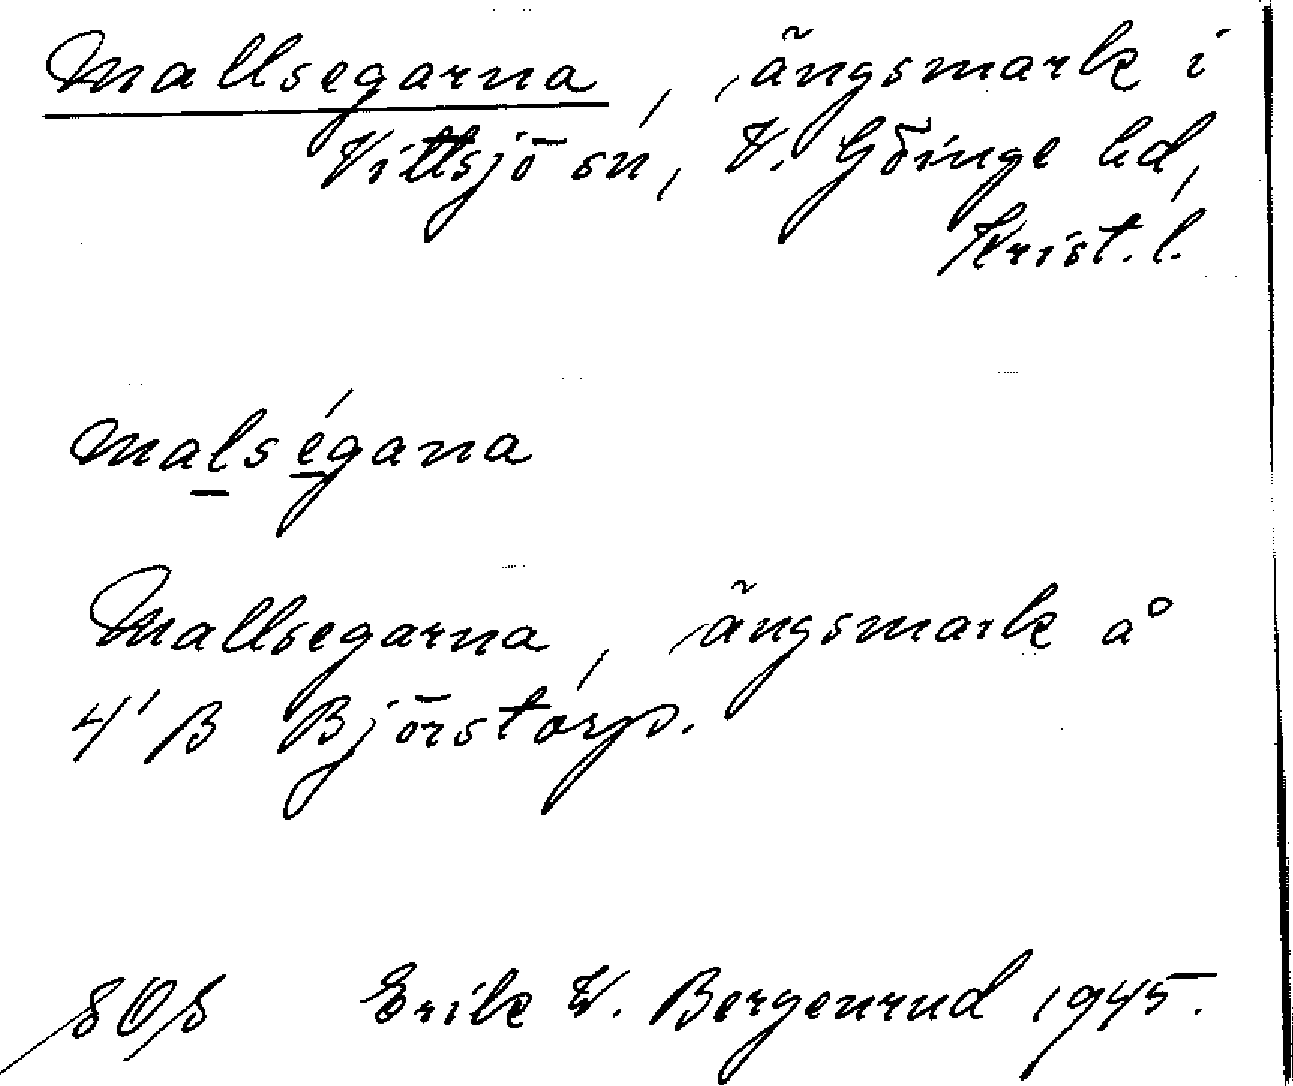 Mallsegarna, ängsmark i
Vittsjö sn, V. Göinge hd,
Krist. l.
malségana
Mallsegarna, ängsmark å
4' B Björstorp.
SOS Erik W. Bergenrud 1945.